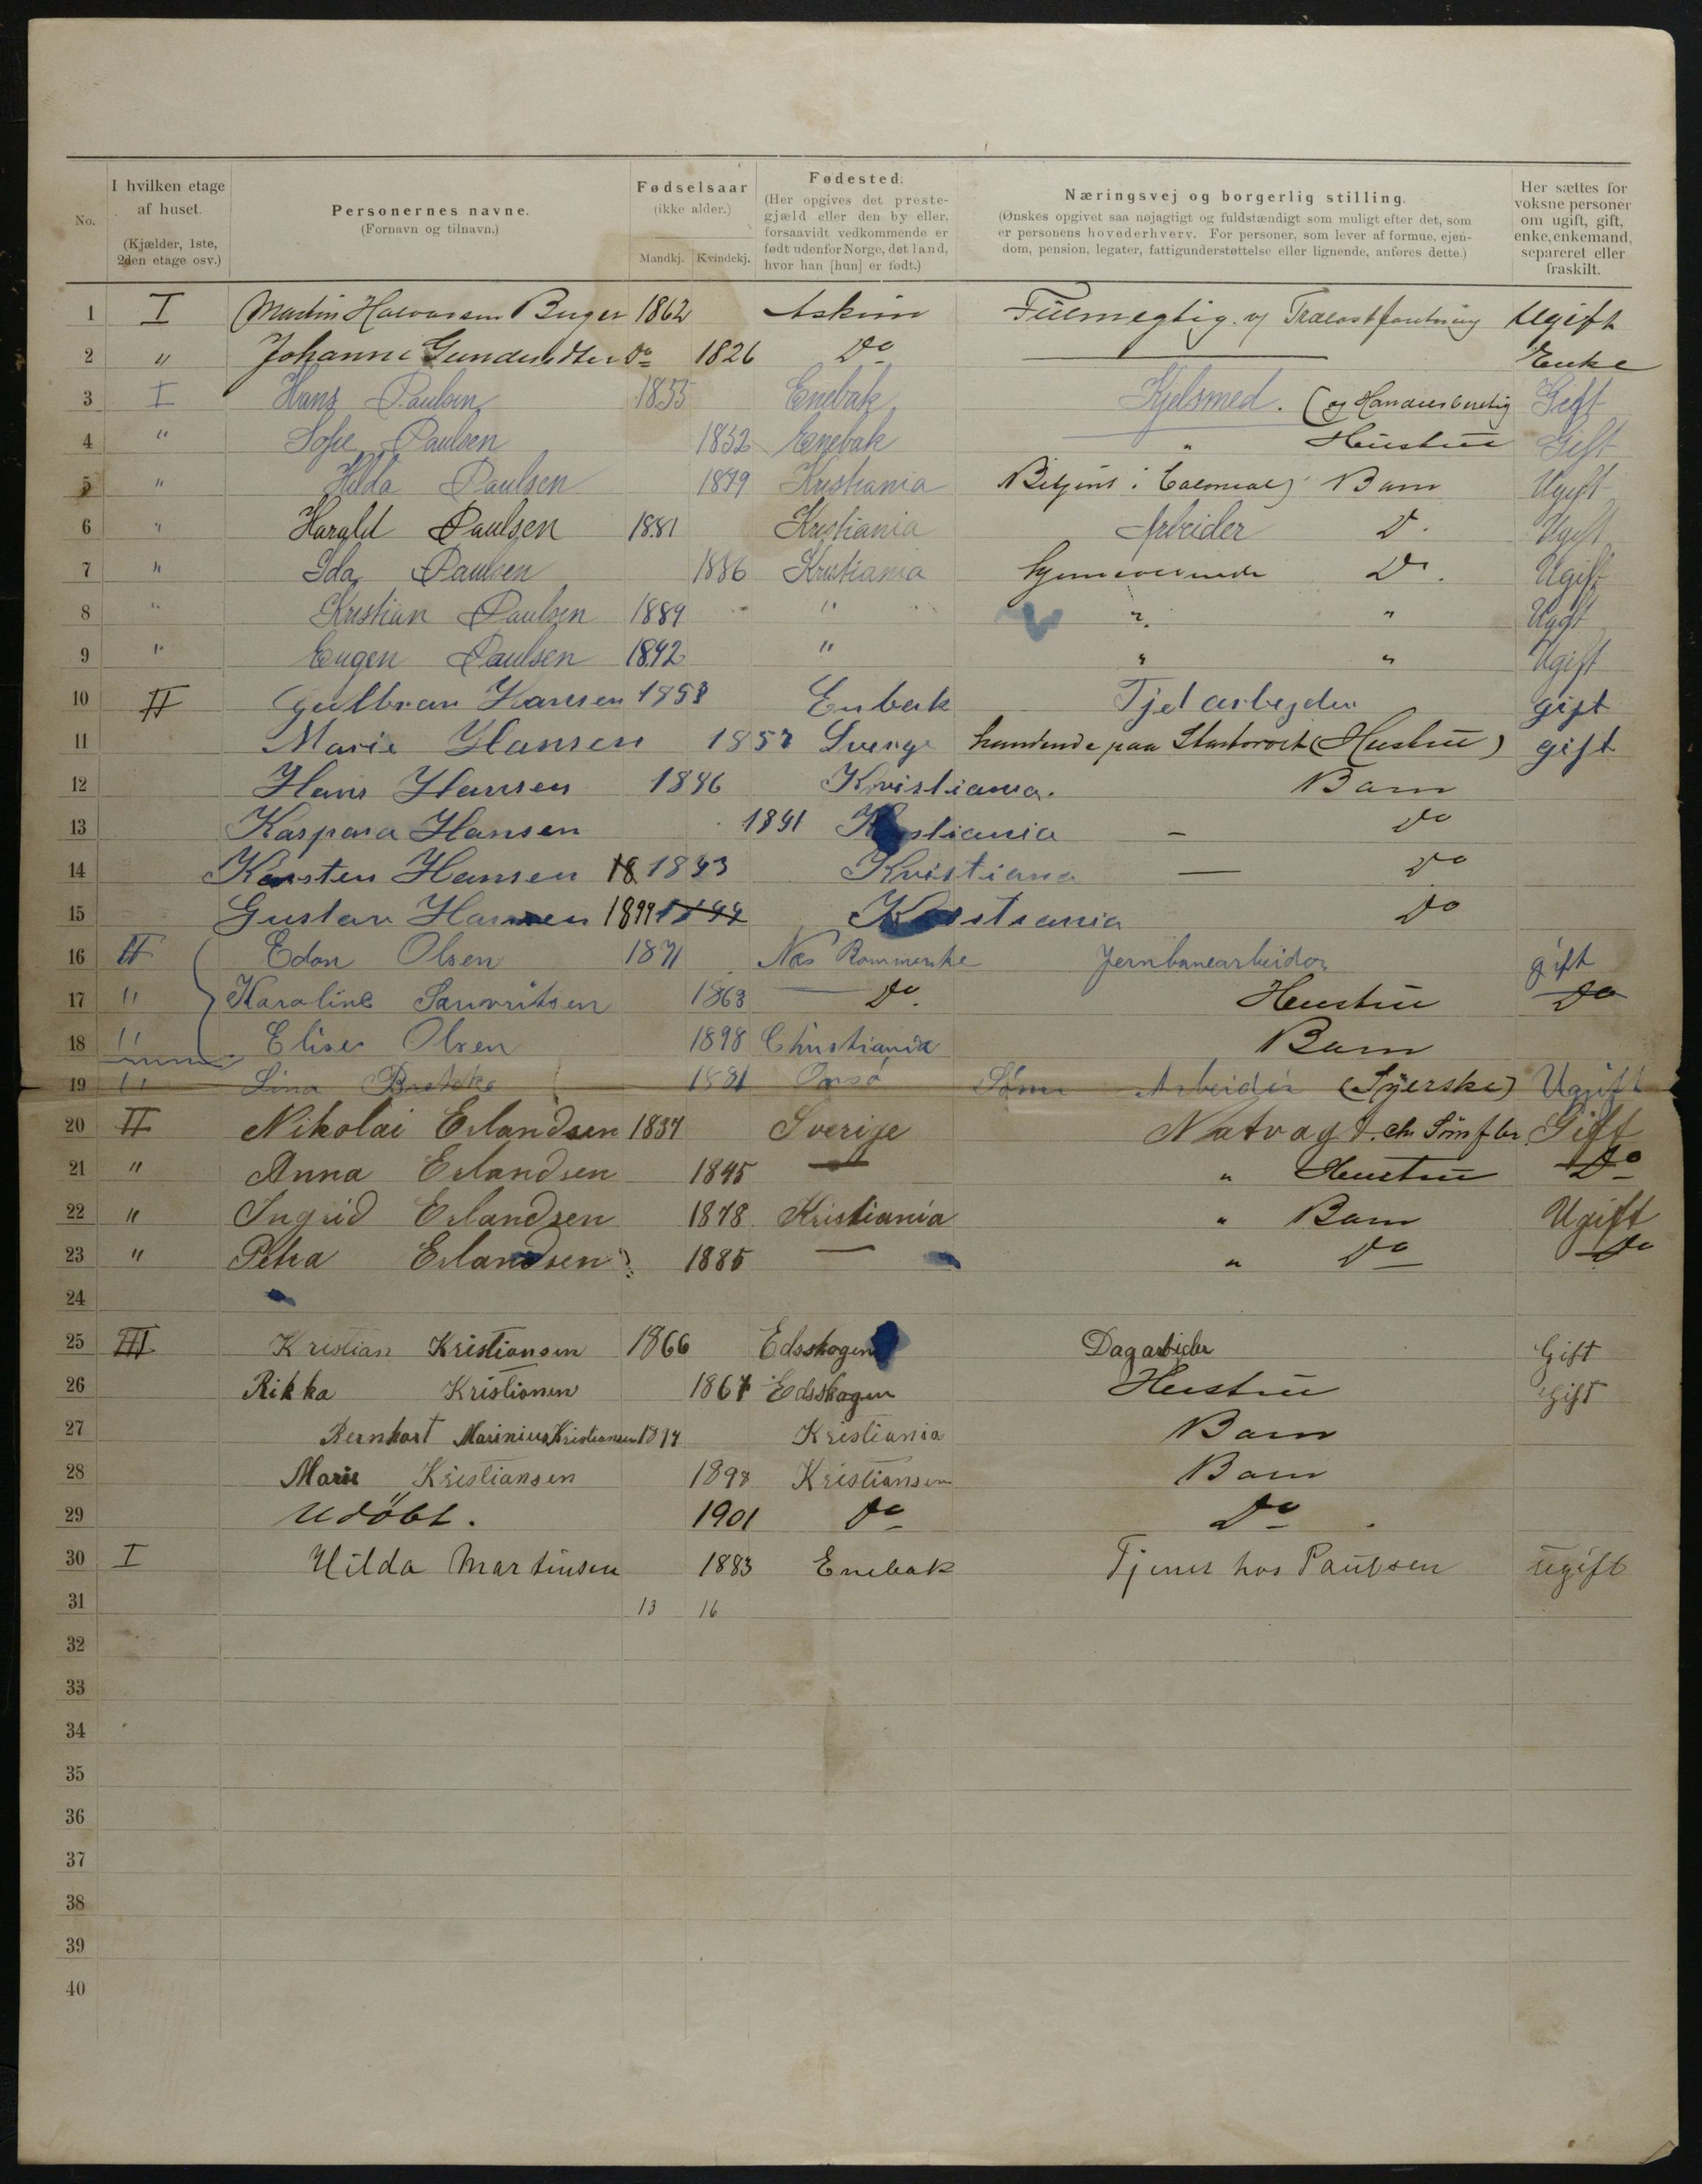 No.
I hvilken etage af huset.
(Kjælder, 1ste, 2den etage osv.)
Personernes navne.
(Fornavn og tilnavn.)
Fødselsaar
(ikke alder.)
Mandkj. Kvindekj.
Fødested.
(Her opgives det preste-
gjæld eller den by eller,
forsaavidt vedkommende er
født udenfor Norge, det land,
hvor han [hun] er født.)
Næringsvej og borgerlig stilling.
(Ønskes opgivet saa nøjagtigt og fuldstændigt som muligt efter det, som
er personens hovederhverv. For personer, som lever af formue, ejen-
dom, pension, legater, fattigunderstøttelse eller lignende, anføres dette.)
Her sættes for
voksne personer
om ugift, gift,
enke, enkemand,
separeret eller
fraskilt.
1 I Martin Halvorsen 1862 Askim Fuldmegtig Ugift
2 " Johanne Do 1826 Do Enke
3 I Hans Paulsen 1855 Enebak Kjelsmed. Gift
4 " Sofie Paulsen 1852 Enebak " Hustru Gift
5 " Hilda Paulsen 1879 Kristiania Barn Ugift
6 " Harald Paulsen 1881 Kristiania Arbeider D. Ugift
7 " Ida Paulsen 1886 Kristiania Do. Ugift
8 " Kristian Paulsen 1889 " " " Ugift
9 " Eugen Paulsen 1892 " " " Ugift
10 II Gulbran Hansen Enbak gift
11 Marie Hansen 1857 Sverige (Hustru) gift
12 Hans Hansen 1886 Kristiania. Barn
13 Kaspara Hansen 1891 Kristiania — Do
14 Karsten Hansen 18 1893 Kristiana — Do
15 Gustav Hansen 1899 1899 Kristiania Do
16 II Edon Olsen 1871 Næs Jernbanearbeider gift
17 " Karoline 1863 Do. Hustru Do
18 " Elise Olsen 1898 Christiania Barn
19 " Lina 1881 Onsø Arbeider (Syerske) Ugift
20 II Nikolai Erlandsen 1837 Sverige Natvagt Gift
21 " Anna Erlandsen 1845 — " Hustru Do
22 " Ingrid Erlandsen 1878 Kristiania " Barn Ugift
23 " Petra Erlandsen 1885 — " Do Do
24
25 III Kristian Kristiansen 1866 Edsskogen Dagarbeider Gift
26 Rikka Kristiansen Edsskogen Hustru Gift
27 Bernhart Marinius Kristiansen Kristiania Barn
28 Marie Kristiansen 1898 Kristiansen Barn
29 Udöbt. 1901 Do Do
30 I Hilda Martinsen 1883 Enebak Tjener hos Paulsen ugift
31 13 16
32
33
34
35
36
37
38
39
40